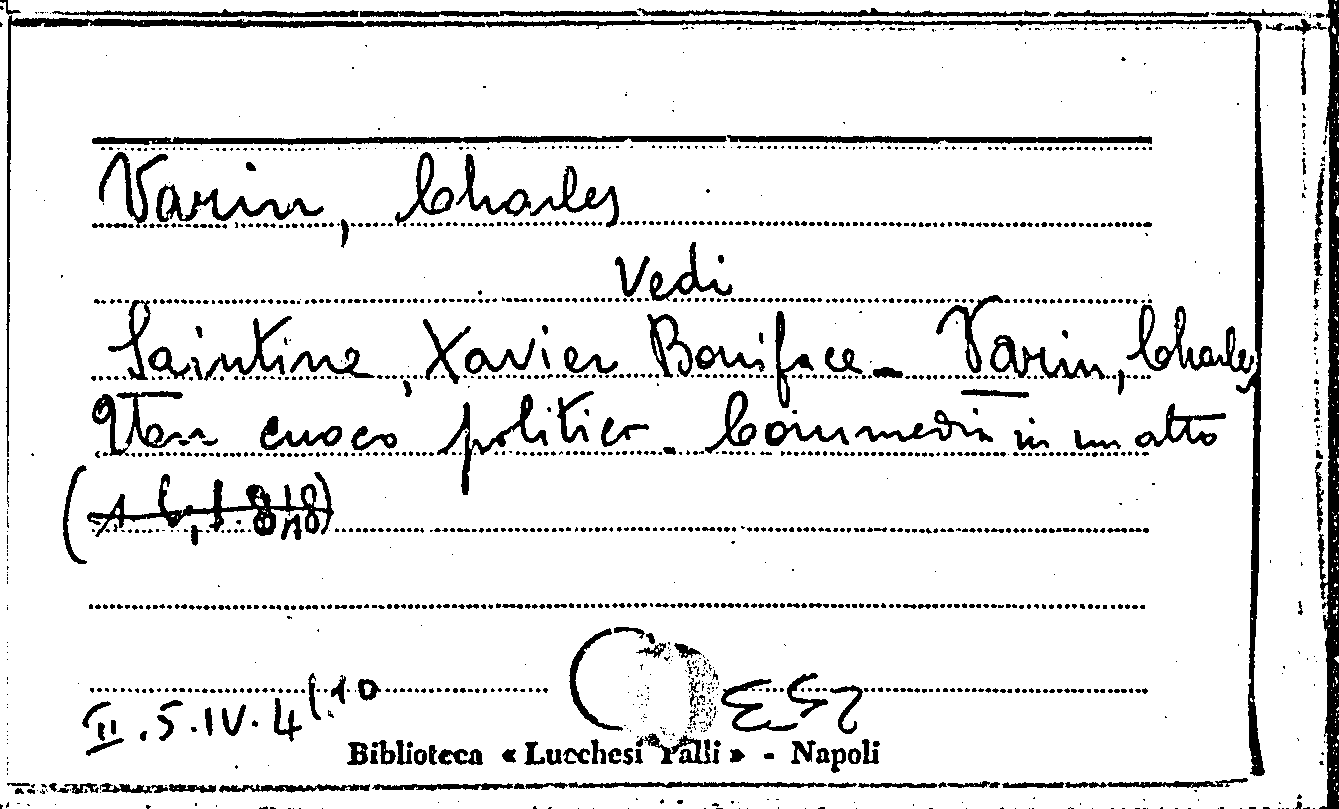 Varin, Charles
Vedi
Saintine, Xavier Boniface - Varin, Charles
Un cuoco politico - Commedia in un atto
II.5.IV.4(10
Biblioteca « Lucchesi Palli » - Napoli